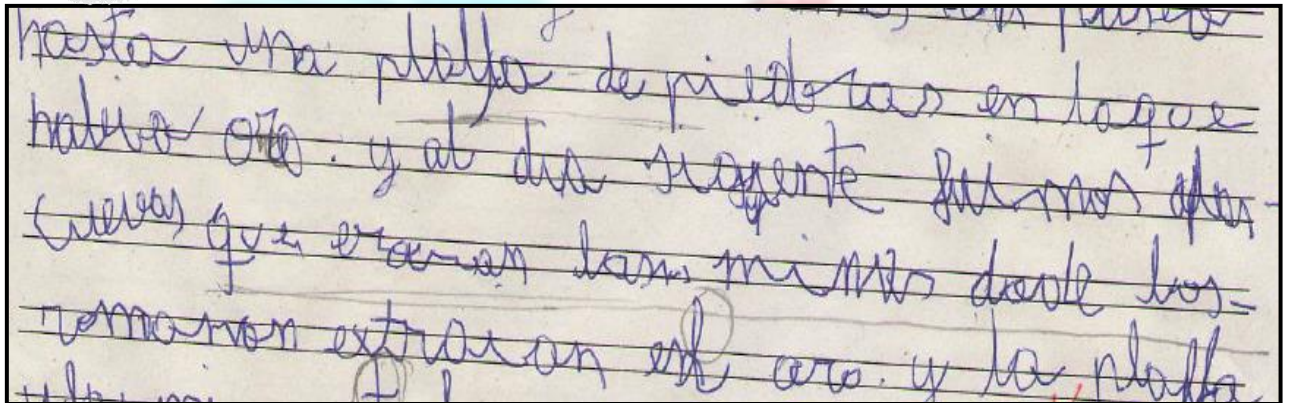 un paseo
hasta una plalla de piedras en la que
había oro. y al dia siguente fuimos a las
cuevas que eran las minas donde los
romanon extraian el oro. y la plalla